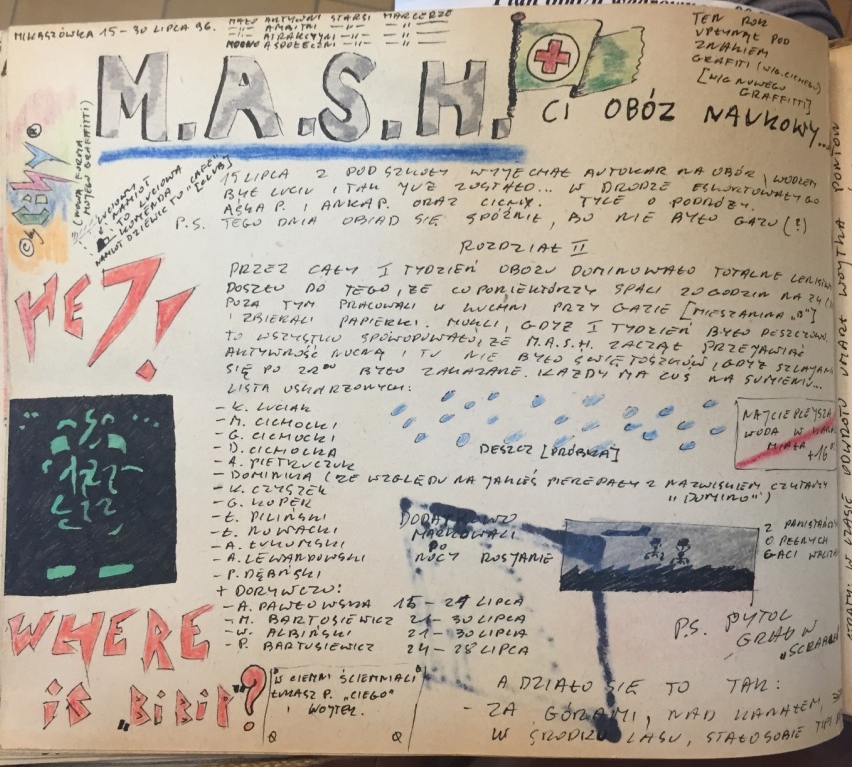 MIKASZÓWKA 15-30 LIPCA 96.
MAŁO AKTYWNI STARSI HARCERZE
-II- AMBITNI -II- -II-
-II- ATRAKCYJNI -II- -II-
MOCNO ASPOŁECZNI -II- -II-
TEN ROK
UPŁYNĄŁ POD
ZNAKIEM
GRAFITI (WG. CICHEGO)
[WG NOWEGO
GRAFFITTI]
M.A.S.H.
CI OBÓZ NAUKOWY...
© by ®
(NOWA FORMA
MUTEGO GRAFFITTI)
LUCJOWY
NAMIOT
KOMENDA
NAMIOT DZIEWIC TO "CAFE"
[CLUB]
15 LIPCA Z POD SZKOŁY WYJECHAŁ AUTOKAR NA OBÓZ, WODZEM
BYŁ LUCIU I TAK JUŻ ZOSTAŁO... W DRODZE ESKORTOWAŁY GO
AŚKA P. I ANKA P. ORAZ CICHY. TYLE O PODRÓŻY.
P.S. TEGO DNIA OBIAD SIĘ SPÓŹNIŁ, BO NIE BYŁO GAZU (!)
ROZDZIAŁ II
PRZEZ CAŁY I TYDZIEŃ OBOZU DOMINOWAŁO TOTALNE
DOSZŁO DO TEGO, ŻE CO PONIEKTÓRZY SPALI 20 GODZIN NA 24
POZA TYM PRACOWALI W KUCHNI PRZY GAZIE [MIESZANINA "B"]
I ZBIERALI PAPIERKI. MOKLI, GDYŻ I TYDZIEŃ BYŁO DESZCZOWO.
TO WSZYSTKO SPOWODOWAŁO, ŻE M.A.S.H. ZACZĄŁ PRZEJAWIAĆ
AKTYWNOŚĆ NOCNĄ I TU NIE BYŁO ŚWIĘTOSZKÓW, GDYŻ SZLAJANIE
SIĘ PO BYŁO ZAKAZANE. KAŻDY MA COŚ NA SUMIENIU...
LISTA OSKARŻONYCH:
- K. LUCIAK
- M. CICHOCKI
- G. CICHOCKI
- D. CICHOCKA
- A. PIETRUCZUK
- DOMINIKA (ZE WZGLĘDU NA JAKIEŚ PIEREPAŁY Z NAZWISKIEM CZYTAMY
"DOMINO")
- K. CZYSZEK
- G. KOPER
- Ł. PILIŃSKI
- Ł. NOWACKI
- A. ŁUKOMSKI
- A. LEWANDOWSKI
- P. DĘBIŃSKI
+ DORYWCZO:
- A. PAWŁOWSKA 15-24 LIPCA
- M. BARTOSIEWICZ 21-30 LIPCA
- W. ALBIŃSKI 21-30 LIPCA
- P. BARTOSIEWICZ 24-28 LIPCA
HE?!
DESZCZ [PRÓBKA]
NAJCIEPLEJSZA
WODA W
MIAŁA
+16°
DODATKOWO
MARKOWALI
PO
NOCY ROSJANIE
Z PANISTAŃCZ
O PEŁNYCH
GACI WALCZ
WHERE
is "BiBiP"?
W CIEMNI ŚCIEMNIALI
ŁUKASZ P. "CIEGO"
I WOJTEK.
P.S. PYTOL
GRAŁ W
"SCRABBLE
A DZIAŁO SIĘ TO TAK:
- ZA GÓRAMI, NAD KANAŁEM,
W ŚRODKU LASU, STAŁO SOBIE TIPI
STRATY: W CZASIE ODWROTU UMARŁ WOJTKA PONTON